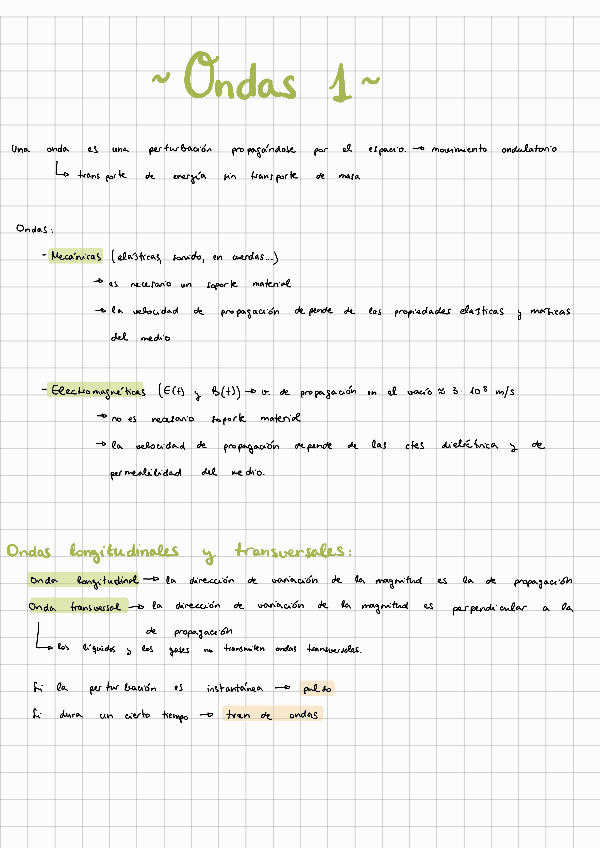 ~ Ondas 1 ~
Una onda es una perturbación propagándose por el espacio. → movimiento ondulatorio
↳ transporte de energía sin transporte de masa
Ondas:
- Mecánicas (elásticas, sonido, en cuerdas...)
→ es necesario un soporte material
→ la velocidad de propagación depende de las propiedades elásticas y másicas
del medio
- Electromagnéticas (E(t) y B(t)) → v. de propagación en el vacío ≈ 3·10⁸ m/s
→ no es necesario soporte material
→ la velocidad de propagación depende de las ctes dieléctrica y de
permeabilidad del medio.
Ondas longitudinales y transversales:
Onda longitudinal → la dirección de variación de la magnitud es la de propagación
Onda transversal → la dirección de variación de la magnitud es perpendicular a la
de propagación
↳ los líquidos y los gases no transmiten ondas transversales.
Si la perturbación es instantánea → pulso
Si dura un cierto tiempo → tren de ondas